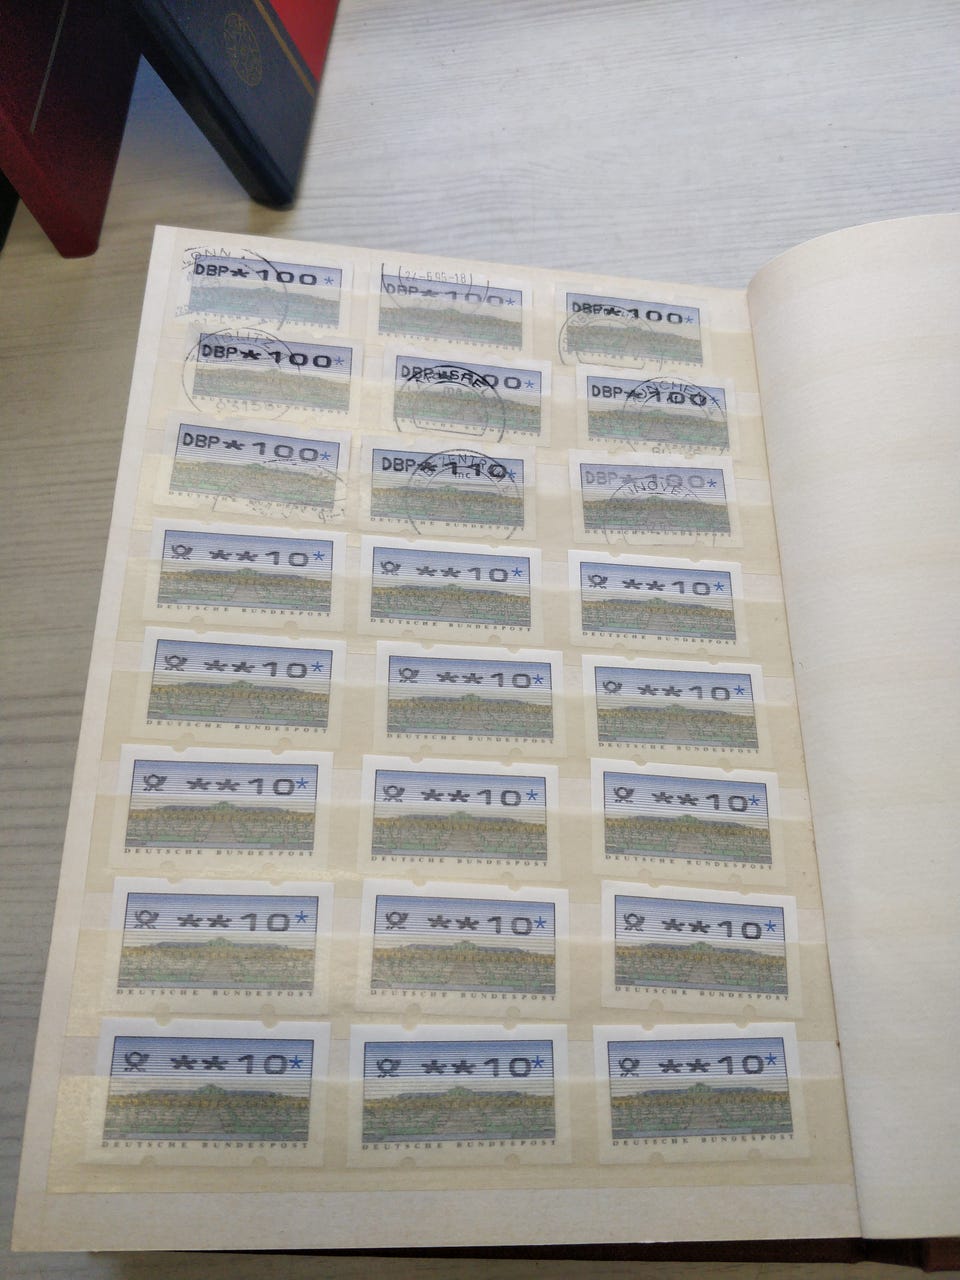 ONN
DBP*100*
24-6.95-18
DBP*100*
DBP*100*
DBP*100*
93158
DBP 00*
DBP*100*
MÜNCHEN
DBP*100*
DBP*110*
BRIEFZENTRUM
DBP*100*
**10*
DEUTSCHE BUNDESPOST
**10*
DEUTSCHE BUNDESPOST
**10*
DEUTSCHE BUNDESPOST
**10*
DEUTSCHE BUNDESPOST
**10*
DEUTSCHE BUNDESPOST
**10*
DEUTSCHE BUNDESPOST
**10*
DEUTSCHE BUNDESPOST
**10*
DEUTSCHE BUNDESPOST
**10*
DEUTSCHE BUNDESPOST
**10*
DEUTSCHE BUNDESPOST
**10*
DEUTSCHE BUNDESPOST
**10*
DEUTSCHE BUNDESPOST
**10*
DEUTSCHE BUNDESPOST
**10*
DEUTSCHE BUNDESPOST
**10*
DEUTSCHE BUNDESPOST